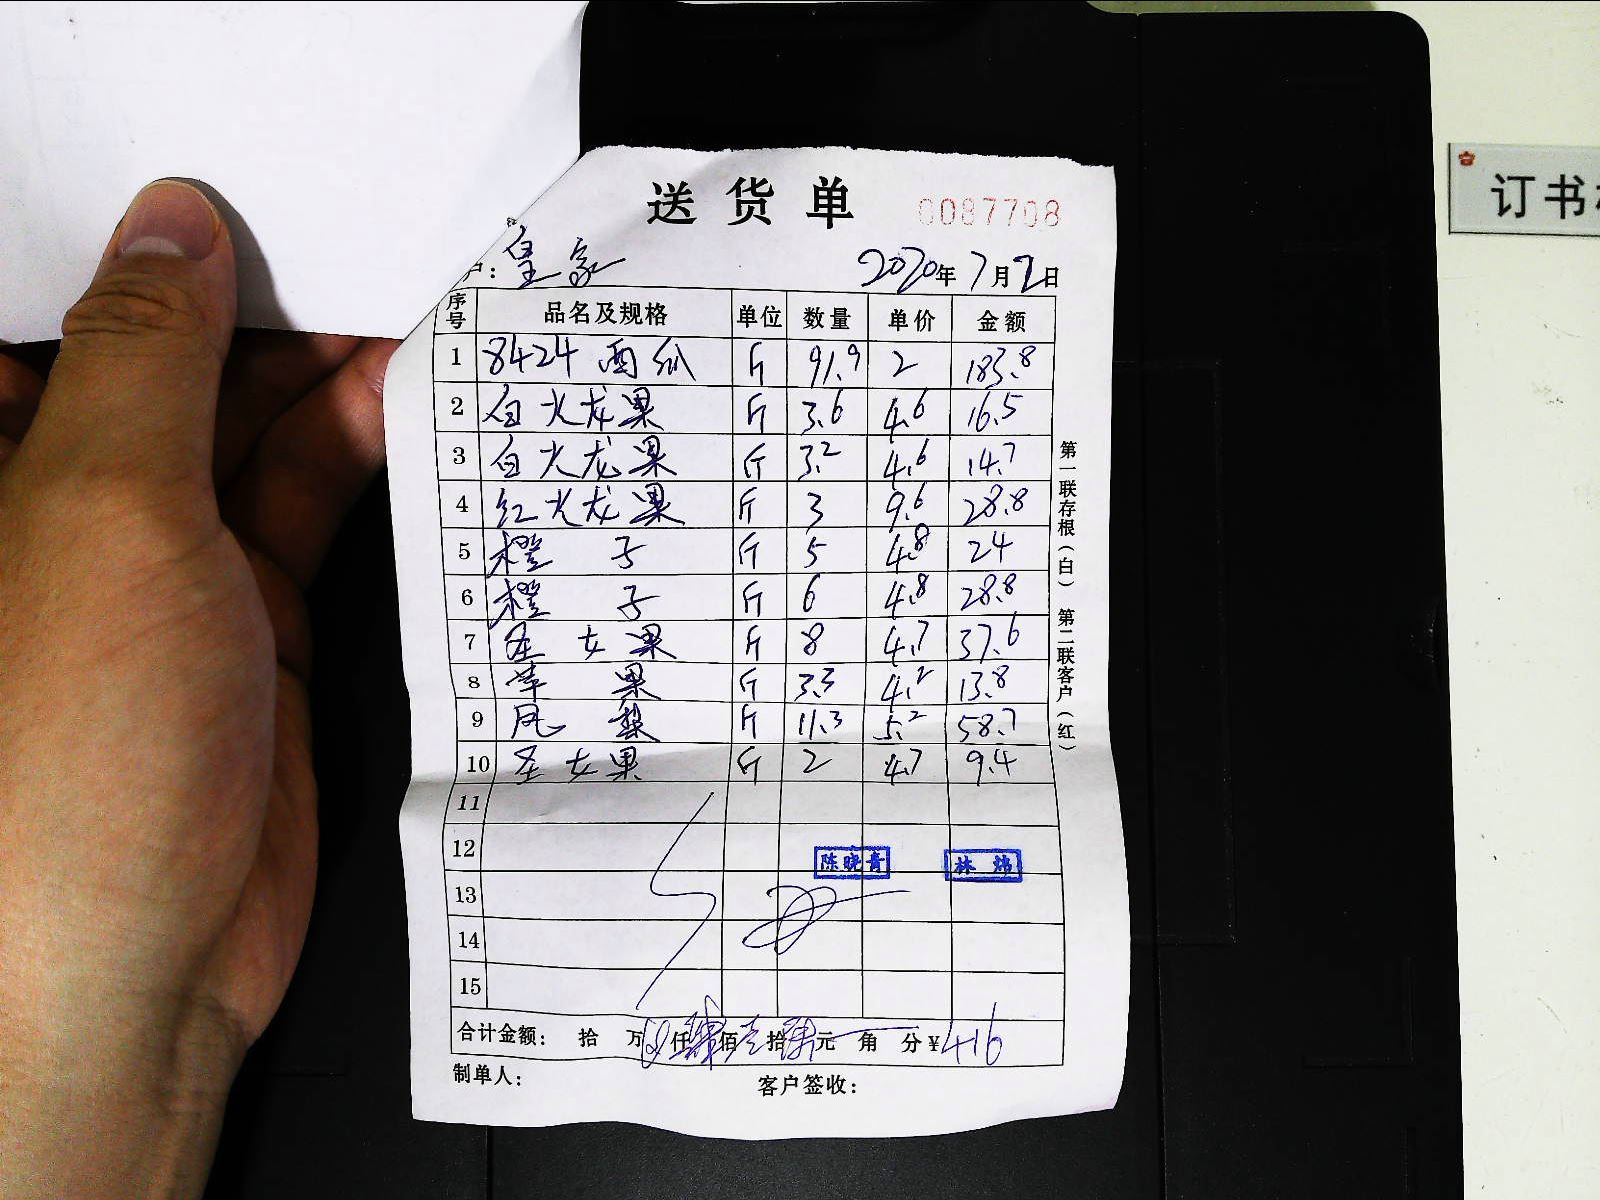 送货单 0087708
户：皇家 2020年7月2日
序号 品名及规格 单位 数量 单价 金额
1 8424西瓜 斤 91.9 2 183.8
2 白火龙果 斤 3.6 4.6 16.5
3 白火龙果 斤 3.2 4.6 14.7
4 红火龙果 斤 3 9.6 28.8
5 橙子 斤 5 4.8 24
6 橙子 斤 6 4.8 28.8
7 圣女果 斤 8 4.7 37.6
8 苹果 斤 3.3 4.2 13.8
9 凤梨 斤 11.3 5.2 58.7
10 圣女果 斤 2 4.7 9.4
11
12 陈晓青 林炜
13
14
15
合计金额： 拾 万 仟肆佰壹拾陆元 角 分￥416
制单人： 客户签收：
第一联存根（白） 第二联客户（红）
订书